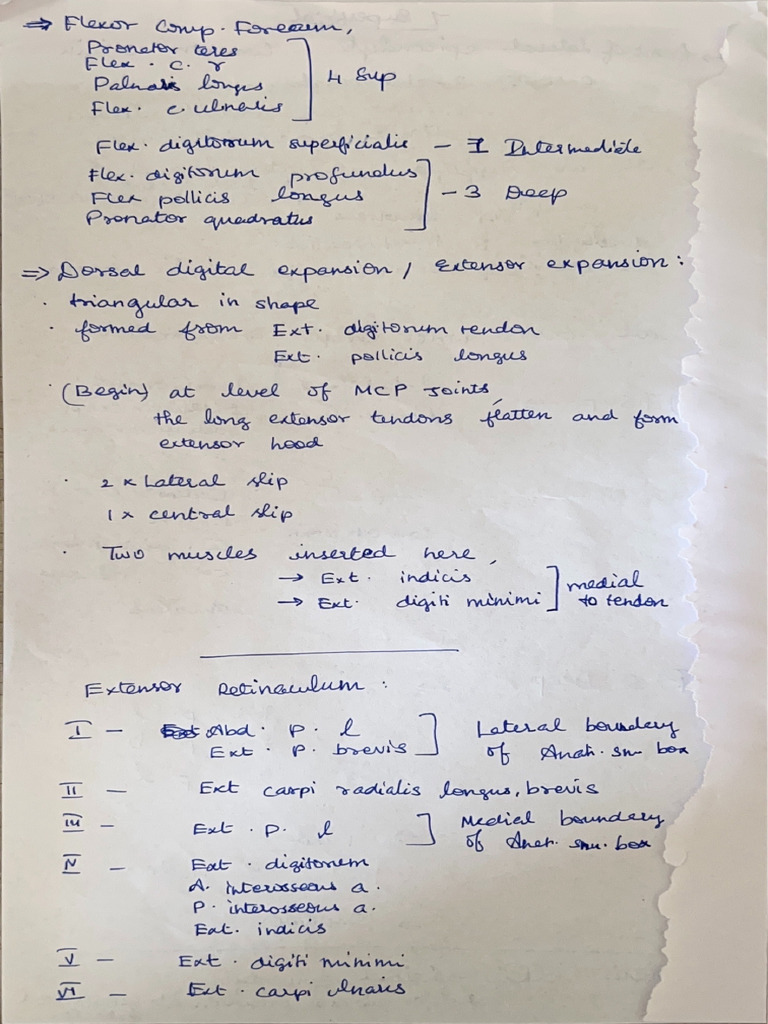 ⇒ Flexor Comp. Forearm,
Pronator teres
Flex. c. r
Palmaris longus
Flex. c. ulnaris
4 Sup
Flex. digitorum superficialis – 1 Intermediate
Flex. digitorum profundus
Flex pollicis longus
Pronator quadratus
– 3 Deep
⇒ Dorsal digital expansion / Extensor expansion:
· triangular in shape
· formed from Ext. digitorum tendon
Ext. pollicis longus
· (Begin) at level of MCP Joints,
the long extensor tendons flatten and form
extensor hood
· 2 x Lateral slip
1 x central slip
· Two muscles inserted here,
→ Ext. indicis
→ Ext. digiti minimi
medial
to tendon
Extensor Retinaculum:
I – Abd. P. l
Ext. P. brevis
Lateral boundery
of Anat. sn. box
II – Ext carpi radialis longus, brevis
III – Ext. P. l
Medial boundery
of Anat. snu. box
IV – Ext. digitorum
A. interosseous a.
P. interosseous a.
Ext. indicis
V – Ext. digiti minimi
VI – Ext. carpi ulnaris